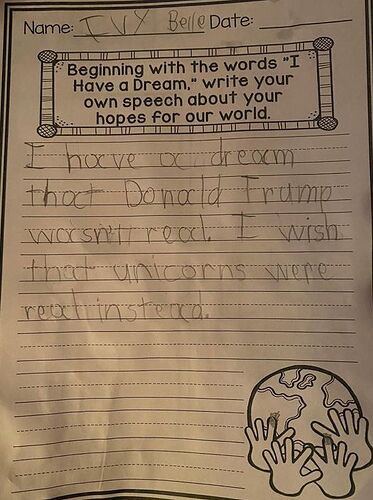 Name: IVY Belle Date:
Beginning with the words "I
Have a Dream," write your
own speech about your
hopes for our world.
I have a dream
that Donald Trump
wasn't real. I wish
that unicorns were
real instead.